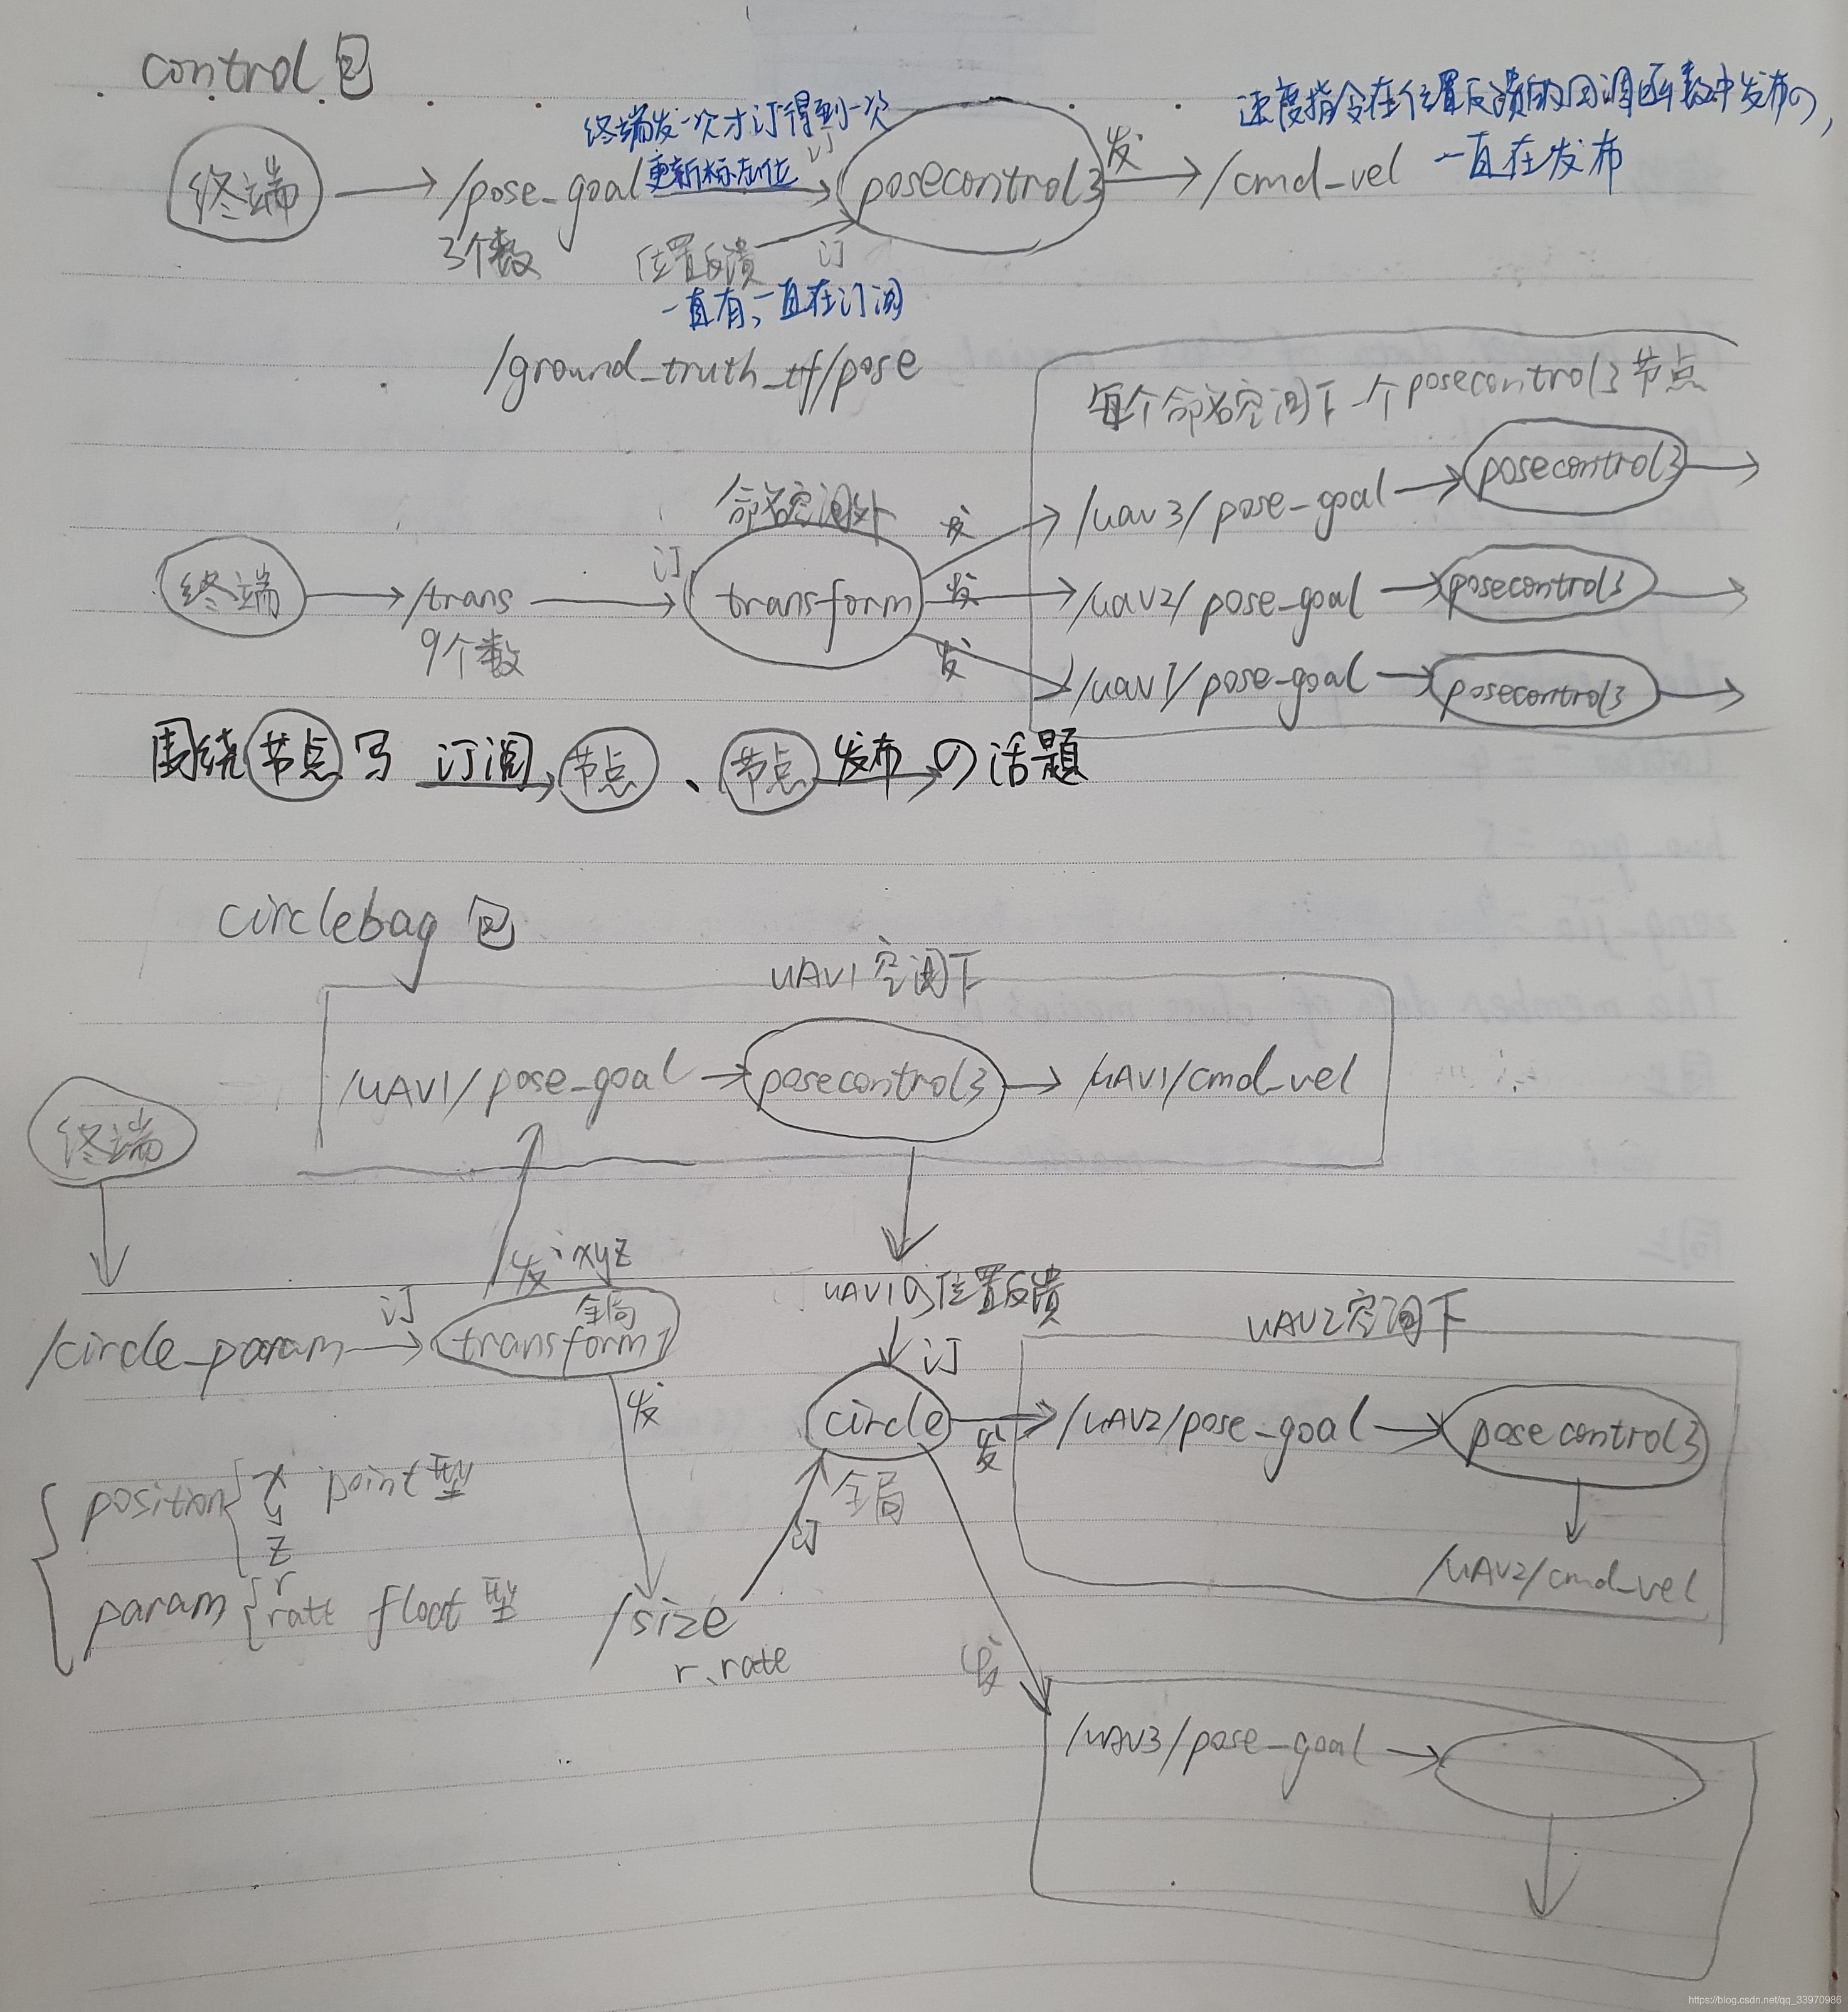 control包
终端发一次才订得到一次
更新标志位
速度指令在位置反馈的回调函数中发布の,
一直在发布
终端
/pose_goal
3个数
订
posecontrol3
发
/cmd_vel
位置反馈
订
一直有,一直在订阅
/ground_truth_tf/pose
每个命名空间下一个posecontrol3节点
命名空间外
终端
/trans
9个数
订
transform
发
/uav3/pose-goal
posecontrol3
发
/uav2/pose-goal
posecontrol3
发
/uav1/pose-goal
posecontrol3
围绕节点写 订阅 节点、节点 发布 の话题
circlebag包
UAV1空间下
/UAV1/pose_goal
posecontrol3
/UAV1/cmd_vel
终端
发 xyz
/circle_param
订
全局
transform1
UAV1の位置反馈
订
UAV2空间下
发
circle
全局
发
/UAV2/pose_goal
posecontrol3
/UAV2/cmd_vel
position
x
y
z
point型
param
r
rate
float型
订
/size
r、rate
发
/UAV3/pose_goal
https://blog.csdn.net/qq_33970986